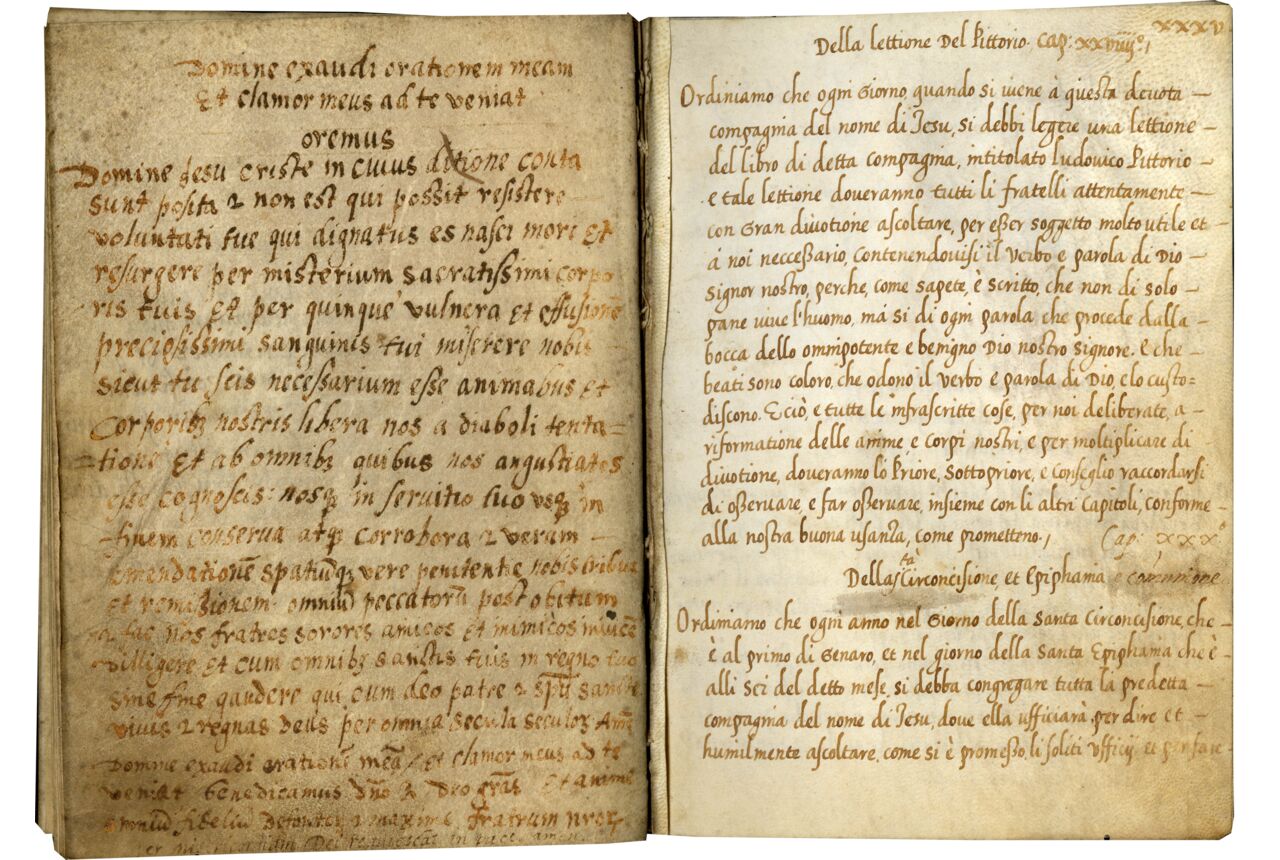 Domine exaudi orationem meam
Et clamor meus ad te veniat
oremus
Domine Jesu criste in cuius ditione conta
sunt posita 2 non est qui possit resistere
voluntati tue qui dignatus es nasci mori Et
resurgere per misterium sacratissimi corpo
ris tuis Et per quinque vulnera et effusionẽ
preciosissimi sanguinis tui miserere nobis
sicut tu scis necessarium esse animabus Et
Corporibꝫ nostris libera nos a diaboli tenta=
tione Et ab omnibꝫ quibus nos angustiatos
esse cognoscis: nosqꝫ in servitio tuo usqꝫ in
finem conserva atqꝫ corrobora 2 veram
emendationẽ spatiumqꝫ vere penitentie nobis tribue
Et remissionem omniũ peccatorũ post obitum
fac nos fratres sorores amicos Et inimicos invicẽ
diligere Et cum omnibꝫ sanctis tuis in regno tuo
sine fine gaudere qui cum deo patre 2 spũ sancto
vivis 2 regnas Deus per omnia secula seculoꝝ Amẽ
Domine exaudi orationẽ meã Et clamor meus ad te
veniat benedicamus dño Deo grãs Et anime
omniũ fideliũ 2 maxime fratrum nroꝝ
in pace amen
xxxv
Della lettione Del Pittorio. Cap: xxviiij.º
Ordiniamo che ogni Giorno, quando si viene à questa devota —
compagnia del nome di Jesu, si debbi legere una lettione —
del libro di detta compagnia, intitolato Ludovico Pittorio —
e tale lettione doveranno tutti li fratelli attentamente —
con Gran divotione ascoltare, per esser soggetto molto utile et
à noi neccessario, Contenendovisi il verbo e parola di Dio —
Signor nostro, perche, come sapete, è scritto, che non di solo —
pane vive l'huomo, mà si di ogni parola che procede dalla —
bocca dello omnipotente e benigno Dio nostro Signore. E che —
beati sono coloro, che odono il verbo e parola di Dio, e lo custo=
discono. E ciò, e tutte le infrascritte cose, per noi deliberate, a —
riformatione delle anime e corpi nostri, e per moltiplicare di
divotione, doveranno li Priore, Sottopriore, e Conseglio raccordarsi
di osservare, e far osservare, insieme con li altri Capitoli, conforme —
alla nostra buona usanza, come promettono. Cap: xxx.º
Della S.ta Circoncisione, et Epiphania e communione
Ordiniamo che ogni anno nel Giorno della Santa Circoncisione, che —
è al primo di Genaro, et nel giorno della Santa Epiphania che è —
alli sei del detto mese, si debba congregare tutta la predetta —
compagnia del nome di Jesu, dove ella ufficiarà, per dire et —
humilmente ascoltare, come si è promesso, li soliti Ufficij, et per fare